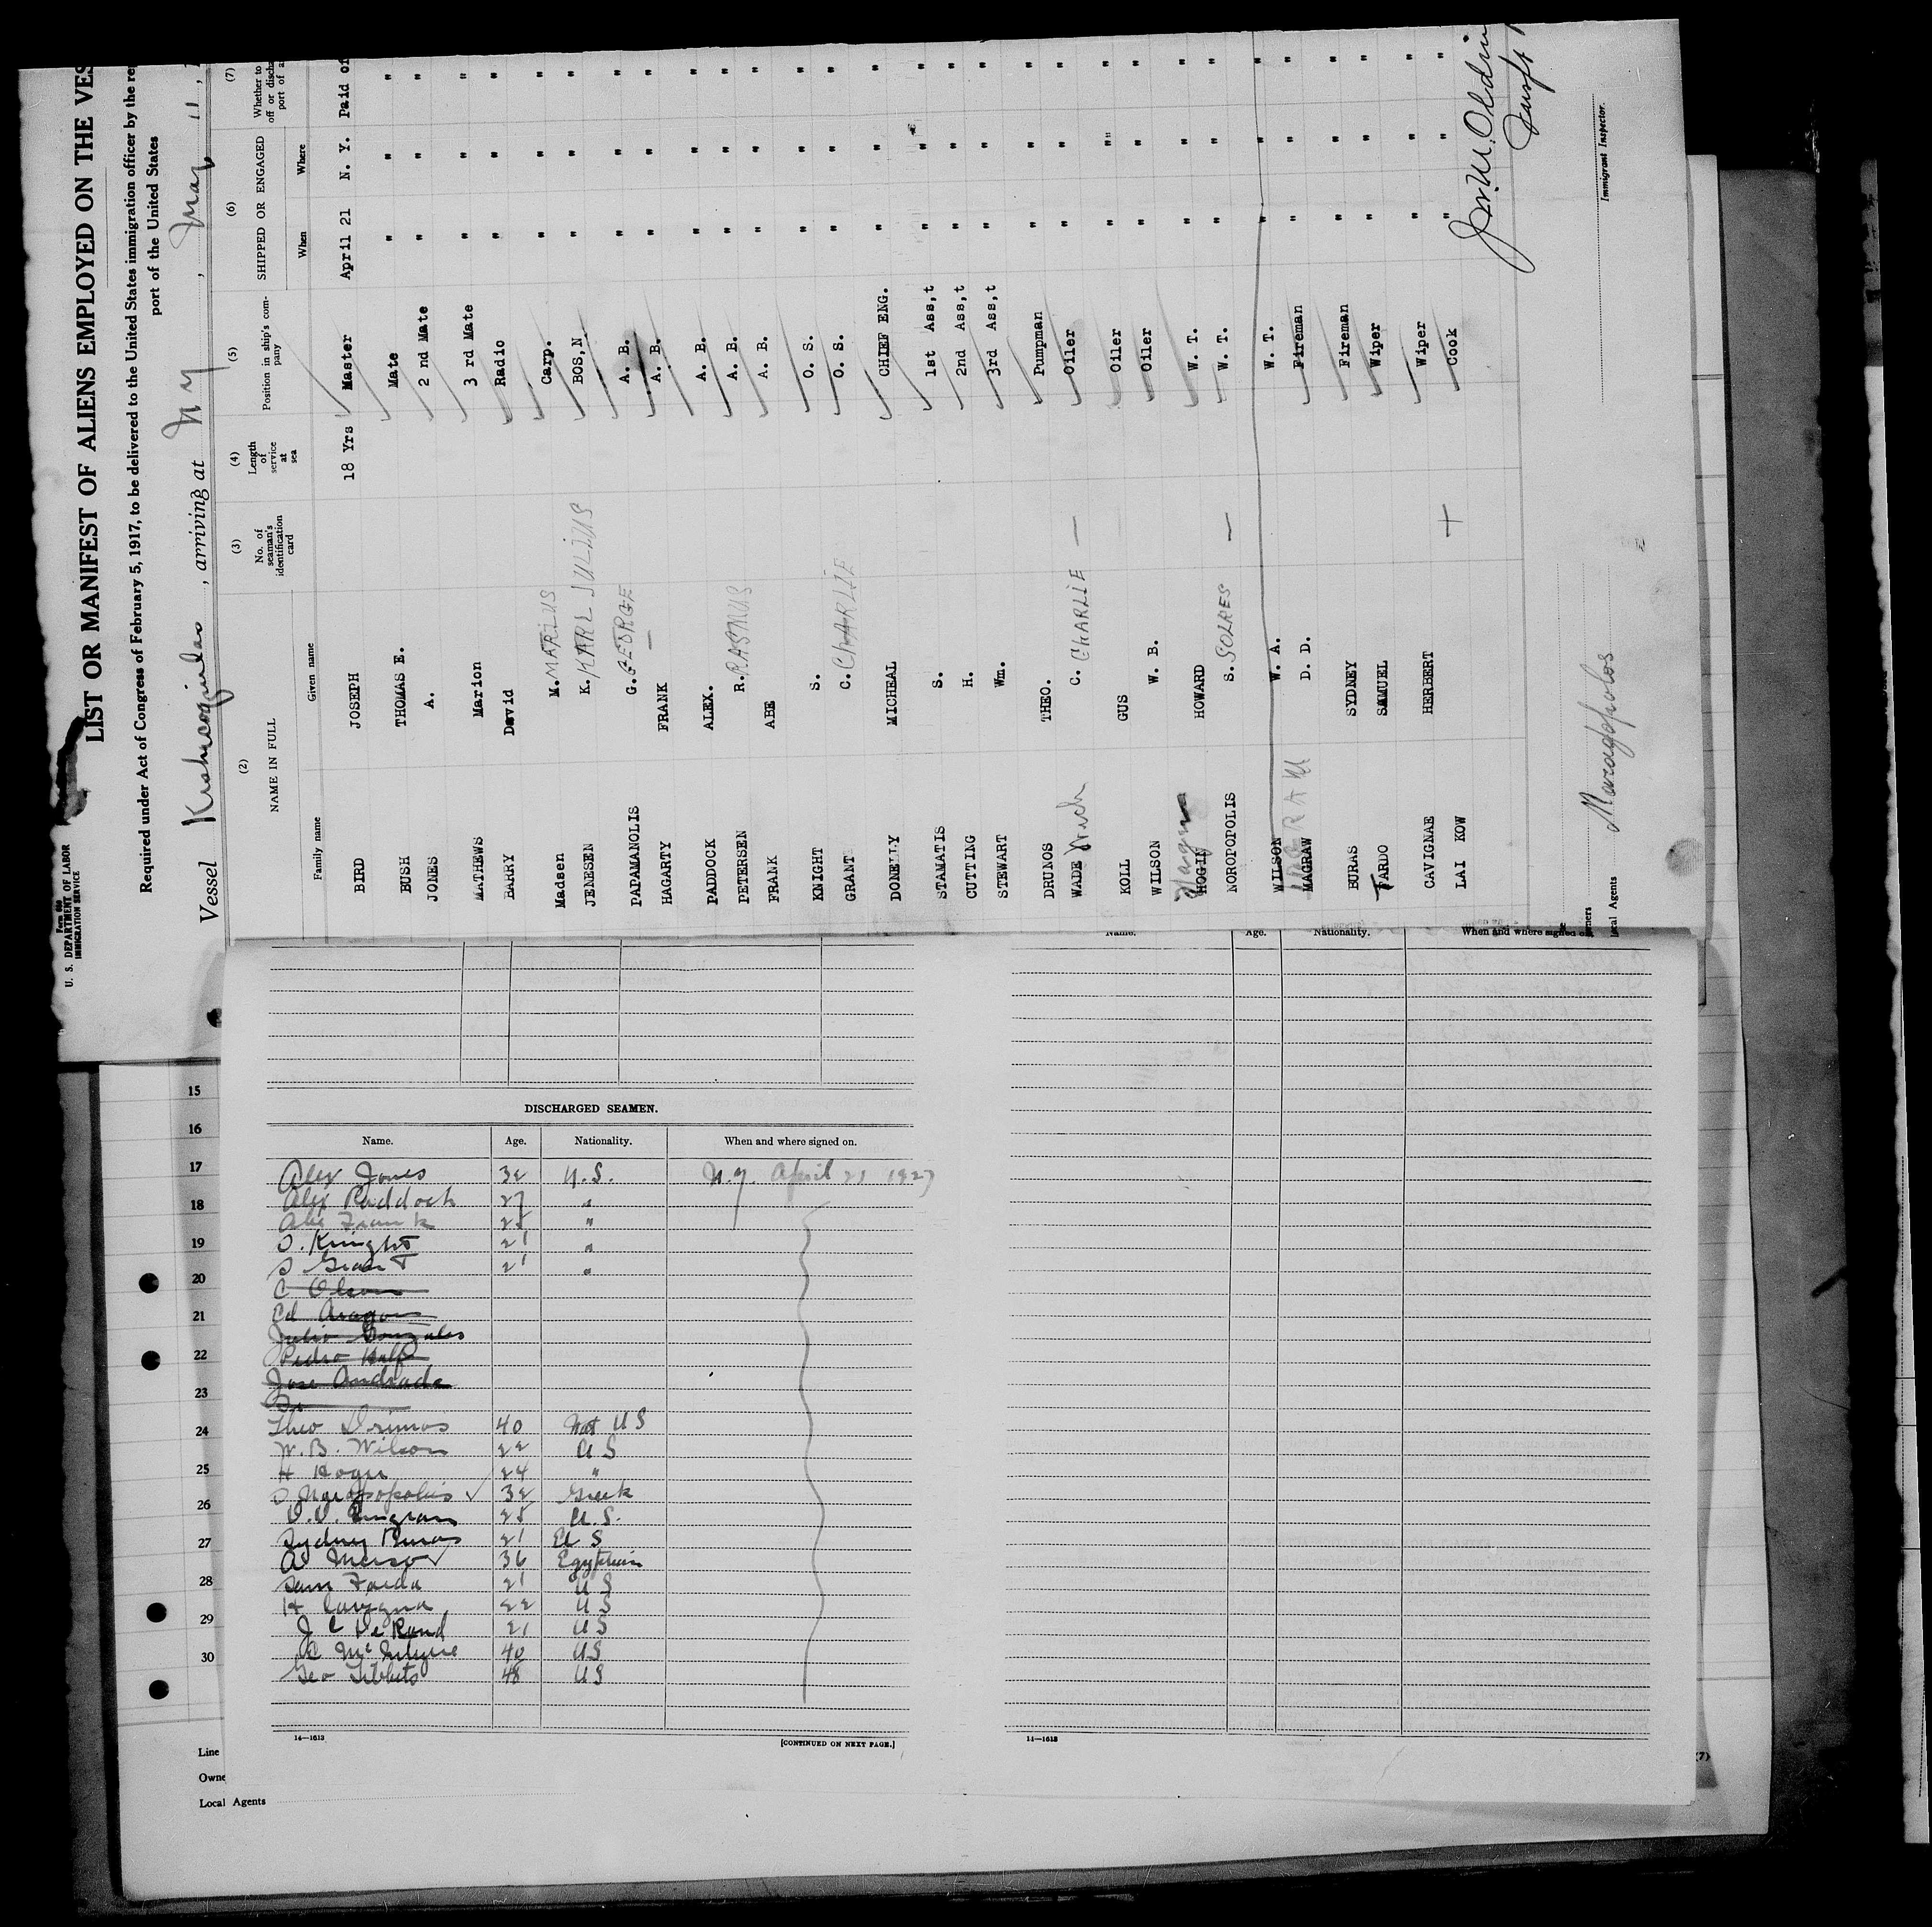 Form 680
U. S. DEPARTMENT OF LABOR
IMMIGRATION SERVICE
LIST OR MANIFEST OF ALIENS EMPLOYED ON THE VES
Required under Act of Congress of February 5, 1917, to be delivered to the United States immigration officer by the re
port of the United States
Vessel , arriving at N Y , May 11, 1
(2) (3) (4) (5) (6) (7)
NAME IN FULL No. of seaman's identification card Length of service at sea Position in ship's company SHIPPED OR ENGAGED Whether to
off or discha
port of a
Family name Given name When Where
BIRD JOSEPH 18 Yrs Master April 21 N. Y. Paid of
BUSH THOMAS E. Mate " " "
JONES A. 2 nd Mate " " "
MATHEWS Marion 3 rd Mate " " "
BARRY David Radio " " "
Madsen M. MARIUS Carp. " " "
JENESEN K. KARL JULIUS BOS,N " " "
PAPAMANOLIS G. GEORGE A. B. " " "
HAGARTY FRANK — A. B. " " "
PADDOCK ALEX. A. B. " " "
PETERSEN R. RASMUS A. B. " " "
FRANK ABE A. B. " " "
KNIGHT S. O. S. " " "
GRANT C. CHARLIE O. S. " " "
DONELLY MICHEAL CHIEF ENG. " " "
STAMATIS S. 1st Ass,t " " "
CUTTING H. 2nd Ass,t " " "
STEWART Wm. 3rd Ass,t " " "
DRUNOS THEO. Pumpman " " "
WADE C. CHARLIE — Oiler " " "
KOLL GUS Oiler " " "
WILSON W. B. Oiler " " "
HOGIN HOWARD W. T. " " "
NOROPOPOLIS S. — W. T. " " "
WILSON W. A. W. T. " " "
MAGRAW D. D. Fireman " " "
BURAS SYDNEY Fireman " " "
FARDO SAMUEL Wiper " " "
CAVIGNAE HERBERT Wiper " " "
LAI KOW + Cook " " "
Immigrant Inspector.
Owners
Local Agents
15
16
17
18
19
20
21
22
23
24
25
26
27
28
29
30
Line
Owne
Local Agents
DISCHARGED SEAMEN.
Name. Age. Nationality. When and where signed on.
Alex Jones 32 U.S. N.Y. April 21 1927
Alex Paddock 27 "
Abe Frank 25 "
S. Knight 21 "
S Grant 21 "
C Olson
Ed Aragon
Julio Gonzales
Pedro
Jose Andrade
Theo Drimos 40 Nat US
W. B. Wilson 22 US
H Hogin 24 "
S 32 Greek
25 U.S.
Sydney Buras 21 U S
36 Egyptian
Sam Fardu 21 U S
H Cavigna 22 U S
J C De Rand 21 U S
C McIntyre 40 US
Geo Tibbets 48 US
14—1613 [CONTINUED ON NEXT PAGE.]
Name. Age. Nationality. When and where signed on
14—1613
(7)